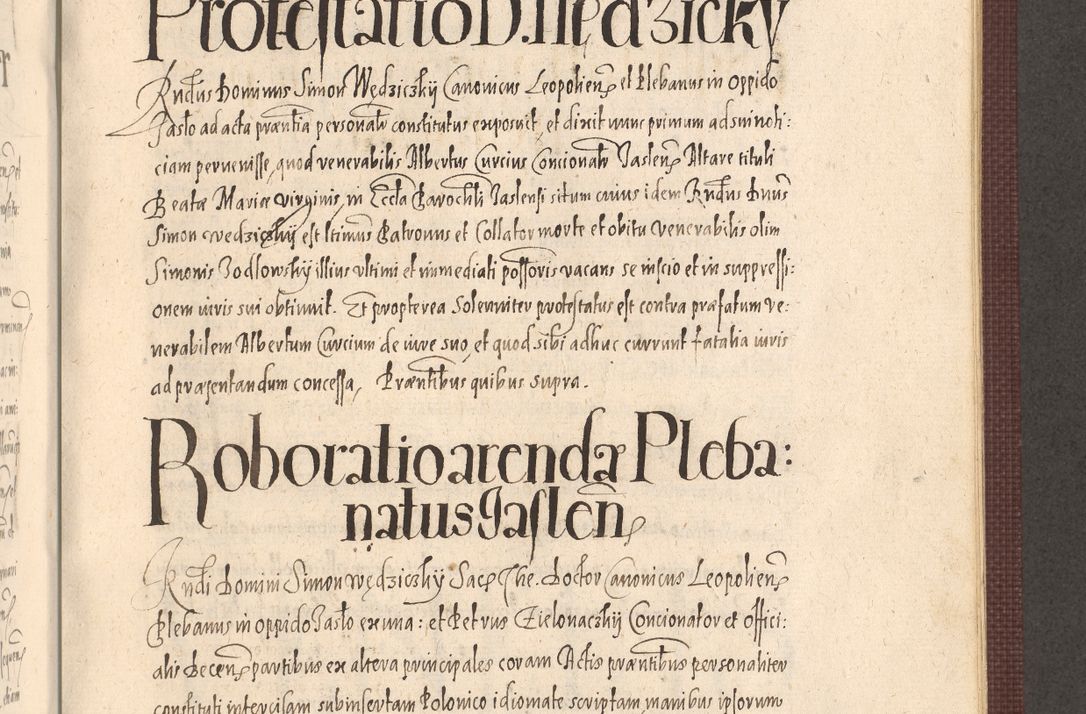 Protestatio D. Wędzicky
Rndus Dominus Simon Wędziczkij Canonicus Leopolien et Plebanus in oppido
Jasło ad acta præntia personalr constitutus exposuit, et dixit nunc primum ad sui noti:
ciam peruenisse, quod venerabilis Albertus Curcius Concionatr Jaslen Altare tituli
Beatæ Mariæ virginis, in Eccla Parochli Jaslensi situm cuius idem Rndus Dnus
Simon wedziczkij est ltimus Patronus et Collator morte et obitu venerabilis olim
Simonis Zodlowskij illius vltimi et immediati possoris vacans se inscio et in suppressi:
onem iuris sui obtinuit. Et propterea Solenniter protestatus est contra præfatum ve:
nerabilem Albertum Curcium de iure suo, et quod sibi adhuc currunt fatalia iuris
ad præsentandum concessa, Præntibus quibus supra.
Roboratio arendæ Pleba:
natus Jaslen
Rndi Domini Simon wędziczkij Sacr The. Doctor Canonicus Leopolien
Plebanus in oppido Jasło ex una: et Petrus Zielonaczkij Concionator et offici:
alis Becen partibus ex altera principales coram Actis præntibus personaliter
constituti intercisam subinsertam Polonico idiomate scriptam, manibus ipsorum